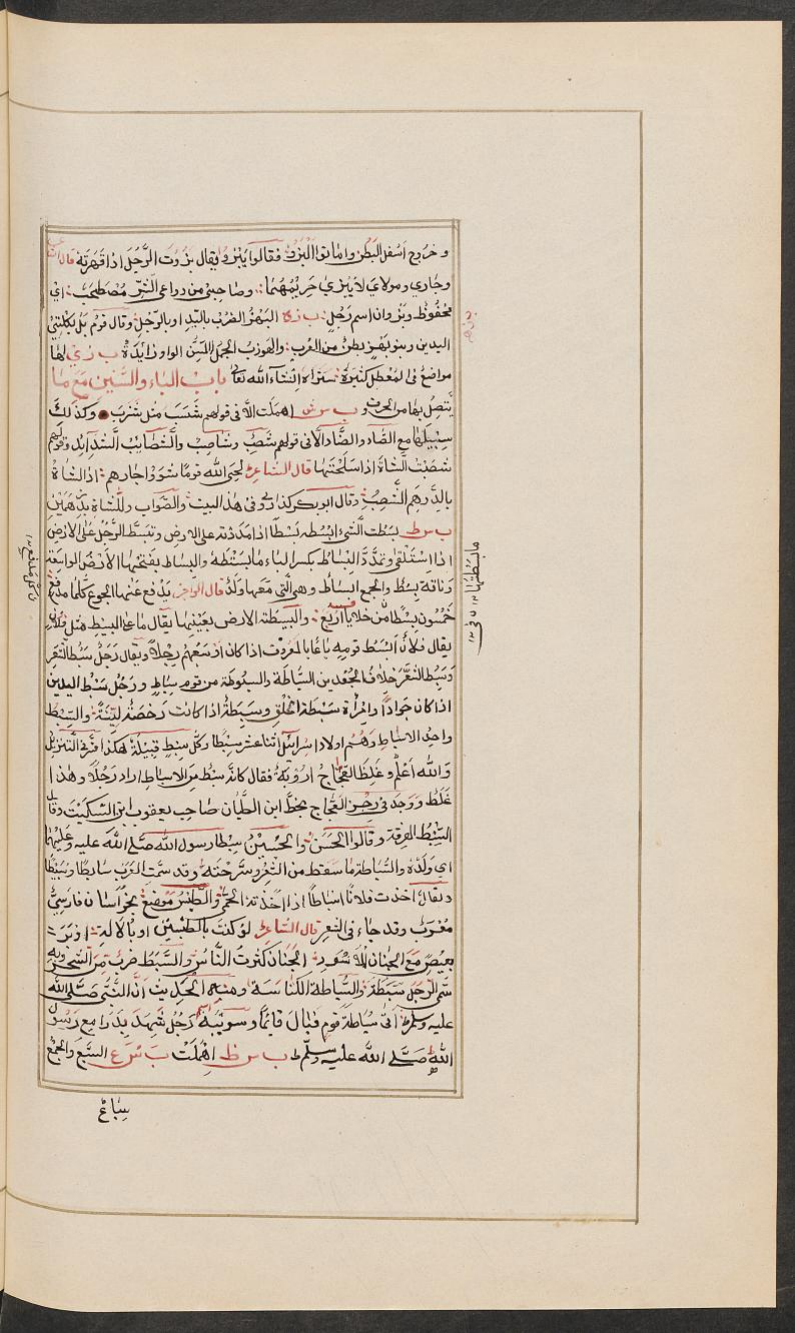 وخروج اسفل البطن واماتوا البزو فقالوا يبزو ويقال بزوت الرجل اذا قهرته قال الشاعر
وجاري ومولاي لا يبزي حريمهما وصاحبي من دواعي الشر مصطحب اي
محفوظ وبزوان اسم رجل ب ز ه البهز الضرب باليد او بالرجل وقال قوم بل بكلتي
اليدين وبنو بهز بطن من العرب والهوزب الجمل المسن الواو زايدة ب ز ي لها
مواضع في المعتل كثيرة ستراه انشاء الله تعالى باب الباء والسين مع ما
يتصل بهما من الحروف ب س ش اهملت الا في قولهم شسب مثل شزب وكذلك
سبيلهما مع الصاد والضاد الا في قولهم شصب وشاصب والشصايب الشدايد وقولهم
شصبت الشاة اذا سلختها قال الشاعر لحى الله قوما شووا جارهم اذا الشاة
بالدرهم الشصب وقال ابوبكر كذا روي في هذا البيت والصواب وللشاة بدرهمين
ب س ط بسطت الشيء ابسطه بسطا اذا مددته على الارض وتبسط الرجل على الارض
اذا استلقى وتمدد البساط بكسر الباء ما بسطته والبساط بفتحها الارض الواسعة
وناقة بسط والجمع ابساط وهي التي معها ولد قال الراجز يدفع عنها الجوع كل مدفع
خمسون بسطا من خلايا اربع والبسيطة الارض بعينها يقال ما على البسيط مثل فلان
يقال فلان ابسط قومه باعا بالمعروف اذا كان اوسعهم رجلا ويقال رجل سبط الشعر
وسبط الشعر خلاف الجعد بين السباطة والسبوطة من قوم سباط ورجل سبط اليدين
اذا كان جوادا وامراة سبطة الخلق وسبطة اذا كانت رخصة لينة والسبط
واحد الاسباط وهم اولاد اسرائيل اثنا عشر سبطا وكل سبط قبيلة هكذا فسر في التنزيل
والله اعلم وغلط العجاج او رؤبة فقال كانه سبط من الاسباط اراد رجلا وهذا
غلط ووجد في رجز العجاج بخط ابن الطيان صاحب يعقوب ابن السكيت وقال
السبط الفرقة وقالوا الحسن والحسين سبطا رسول الله صلى الله عليه وعليهما
اي ولده والسباطة ما سقط من الشعر وسرحته وقد سمت العرب سابطا وسبيطا
ويقال اخذت فلانا اسباطا اذا اخذته الحمى والطبس موضع بخراسان فارسي
معرب وقد جاء في الشعر قال الشاعر لو كنت بالطبسين او بالالة او بربـ
ـعيص مع الجنان الاسود الجنان كثرة الناس والسبط ضرب من الشجر وبه
سمي الرجل سبطة والسباطة الكناسة ومنه الحديث ان النبي صلى الله
عليه وسلم اتى سباطة قوم فبال قائما وسويبط اسم رجل شهد بدرا مع رسول
الله صلى الله عليه وسلم ب س ظ اهملت ب س ع السبع والجمع
سباع